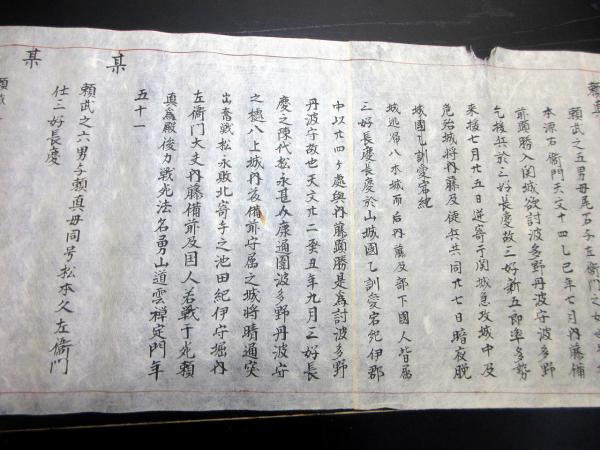 頼真
頼武之五男母尾石与左衛門之女也
本源右衛門天文十四乙巳年七月内藤備
前国勝入関城欲討波多野丹波守波多野
乞援兵於三好長慶故三好新五郎率多勢
来援七月廿五日逆寄于関城急攻城中及
危殆城将内藤及徒兵共同廿七日暗夜脱
城逃帰八木城而后内藤及部下国人皆属
三好長慶長慶於山城國乙訓愛宕紀伊郡
中以廿四ヶ處與内藤國勝是為討波多野
丹波守故也天文廿二癸丑年九月三好長
慶之陳代松永甚介康通圍波多野丹波守
之樋八上城内後備前守属之城将晴通突
出奮戦松永敗北寄手之池田紀伊守堀内
左衛門大夫内藤備前及国人若戦于死頼
真為殿後力戦死法名勇山道雲禅定門年
五十一
某
頼武之六男与頼真母同号松本久左衛門
仕三好長慶
某